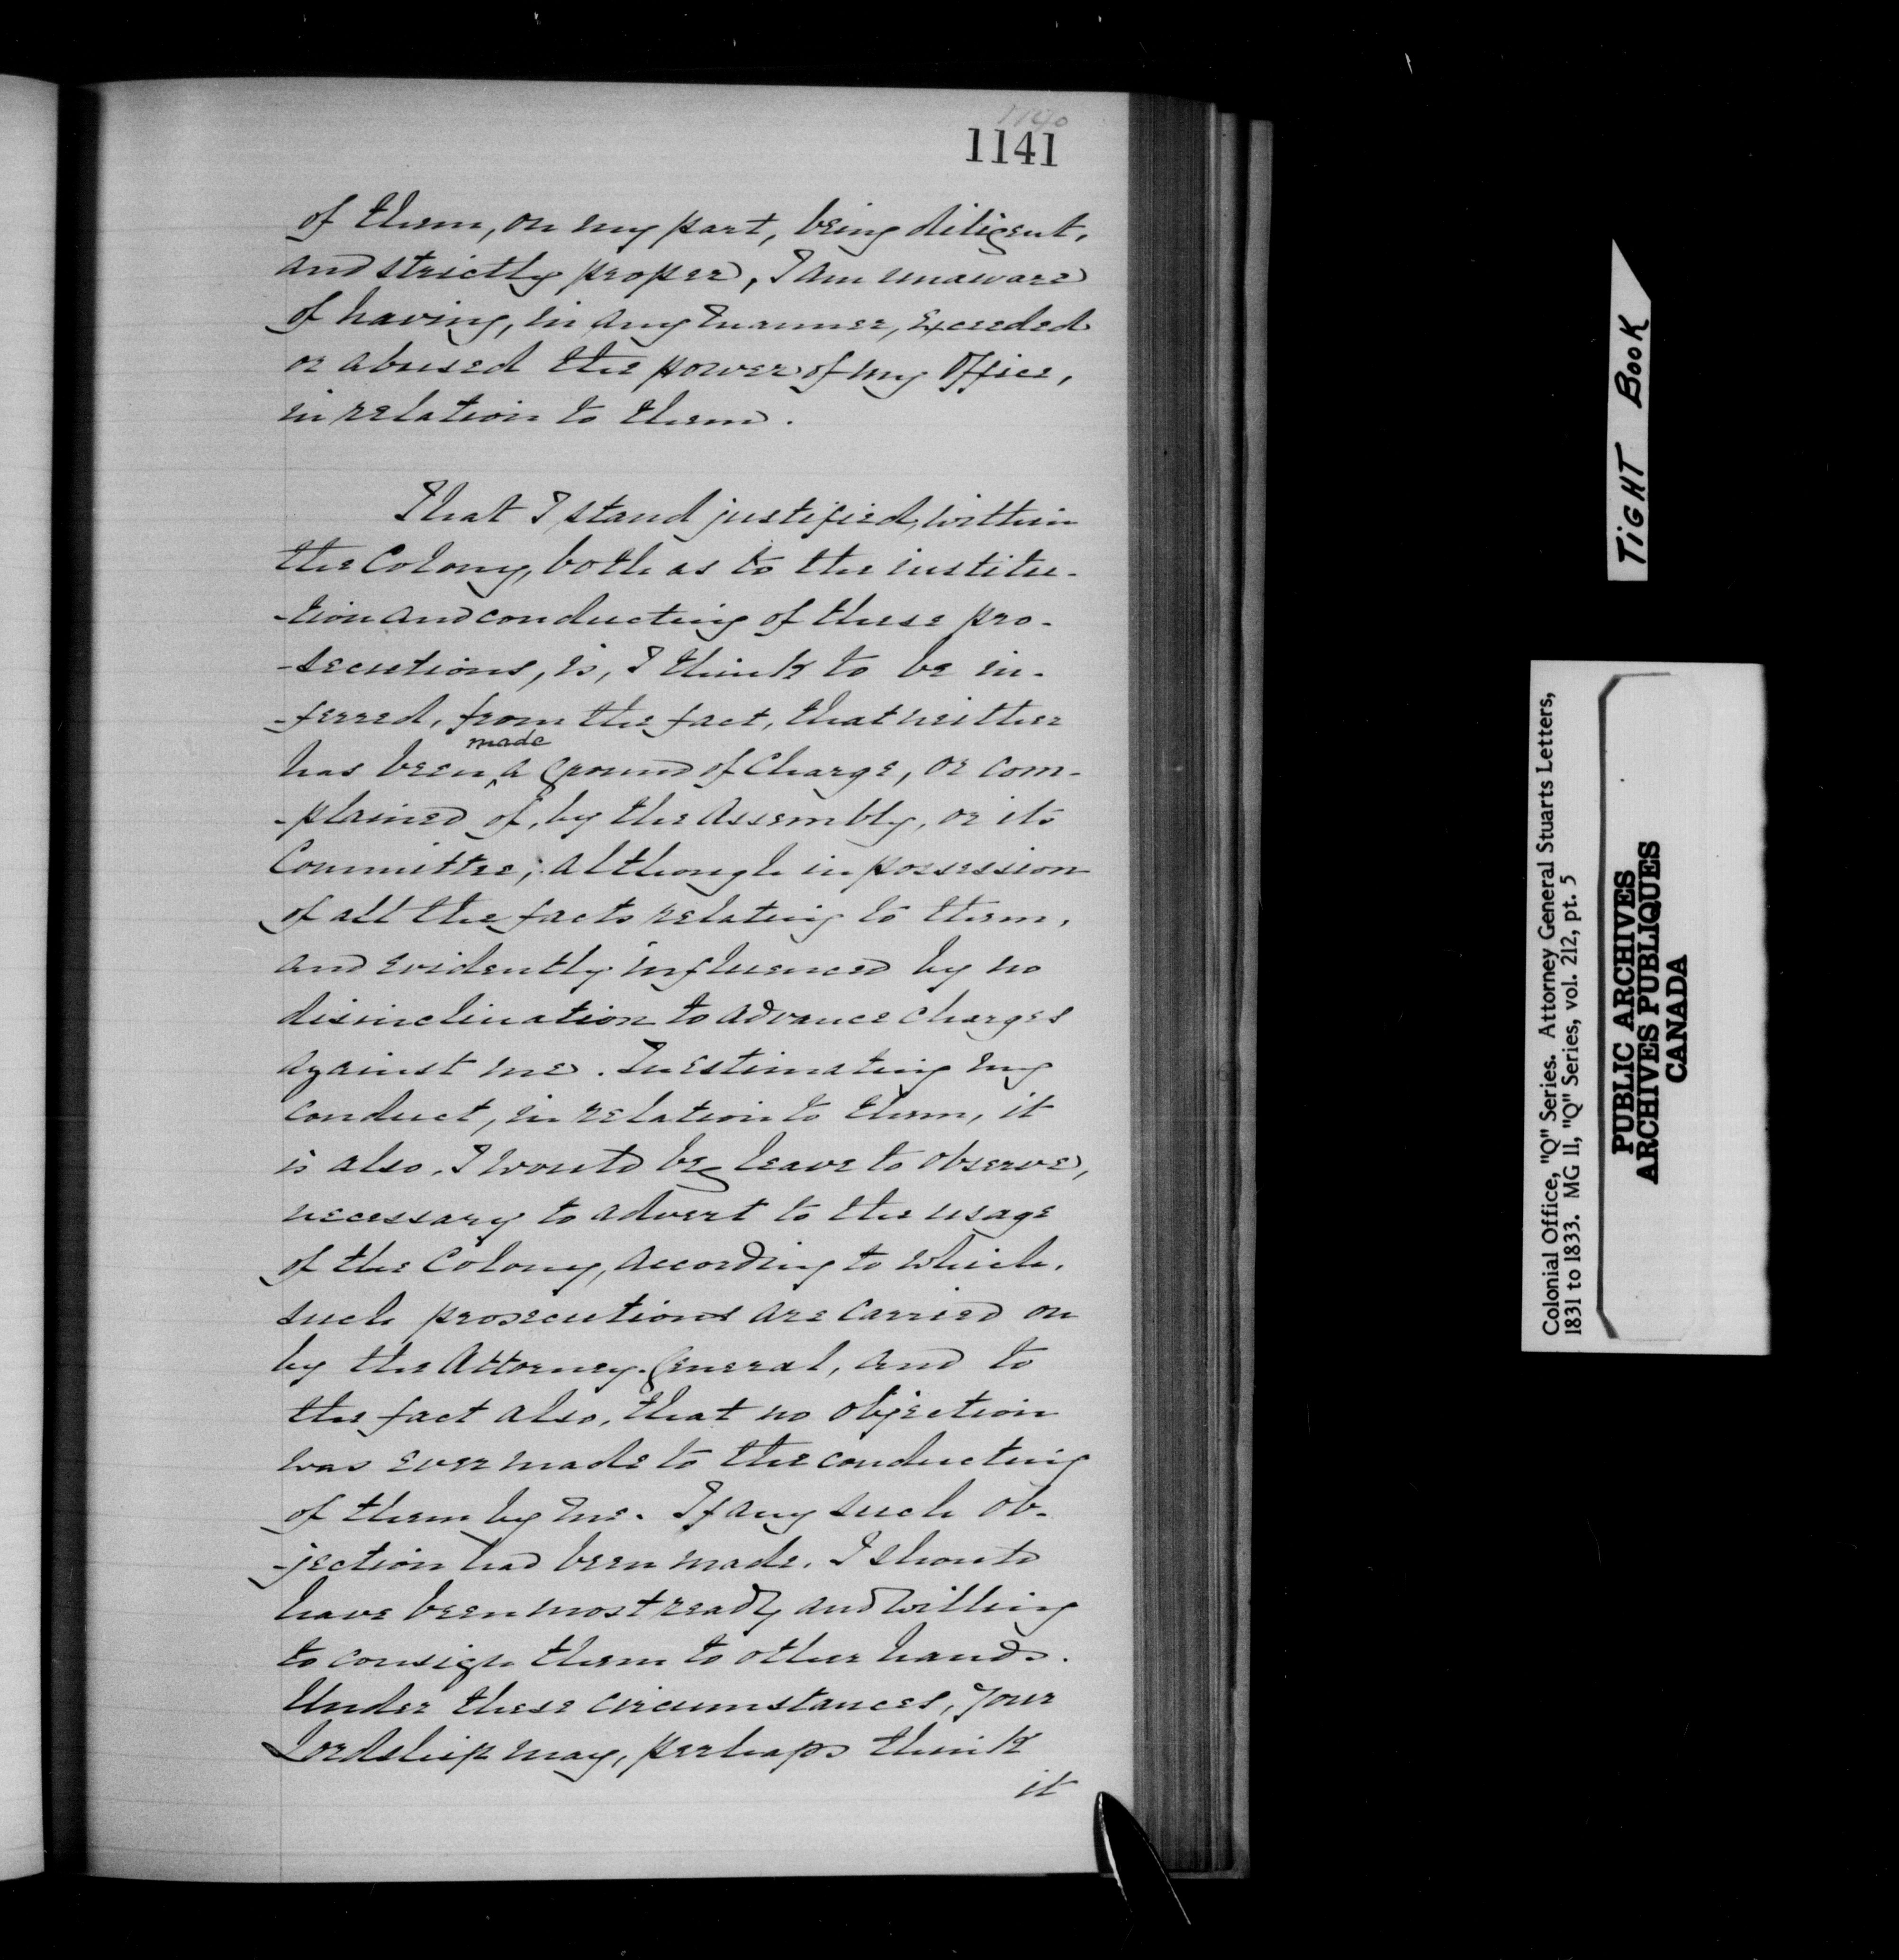 1140
1141
of them, on my part, being diligent,
and strictly proper, I am unaware
of having, in any manner, exceeded
or abused the power of my Office,
in relation to them.
That I stand justified, within
the Colony, both as to the institu-
-tion and conducting of these pro-
-secutions, is, I think to be in-
-ferred, from the fact, that neither
has been made a ground of Charge, or com-
-plained of, by the Assembly, or its
Committee; although in possession
of all the facts relating to them,
and evidently influenced by no
disinclination to advance Charges
against me. In estimating my
conduct, in relation to them, it
is also, I would beg leave to observe,
necessary to advert to the usage
of the Colony, according to which,
such prosecutions are carried on
by the Attorney General, and to
the fact also, that no objection
was ever made to the conducting
of them by me. If any such ob-
-jection had been made, I should
have been most ready and willing
to consign them to other hands.
Under these circumstances, Your
Lordship may, perhaps think
it
TIGHT BOOK
Colonial Office, "Q" Series. Attorney General Stuarts Letters,
1831 to 1833. MG 11, "Q" Series, vol. 212, pt. 5
PUBLIC ARCHIVES
ARCHIVES PUBLIQUES
CANADA